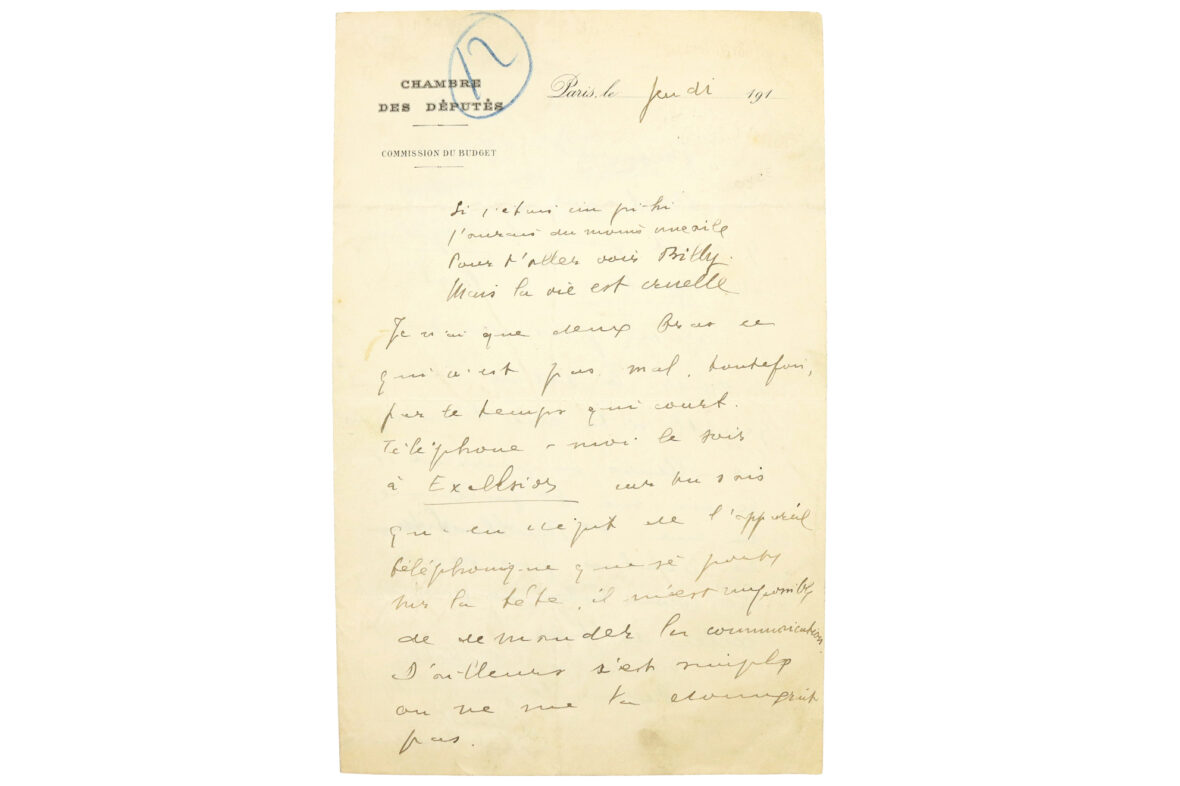 12
CHAMBRE
DES DÉPUTÉS
COMMISSION DU BUDGET
Paris, le Jeudi 191
Si j'étais un pi-hi
J'aurais du moins une aile
Pour t'aller voir Billy.
Mais la vie est cruelle
Je n'ai que deux Bras ce
qui n'est pas mal, toutefois,
par le temps qui court.
Téléphone-moi le soir
à Excelsior car tu sais
qu'en dépit de l'appareil
téléphonique que je porte
sur la tête, il m'est impossible
de demander la communication.
D'ailleurs c'est simple
on ne me la donnerait
pas.